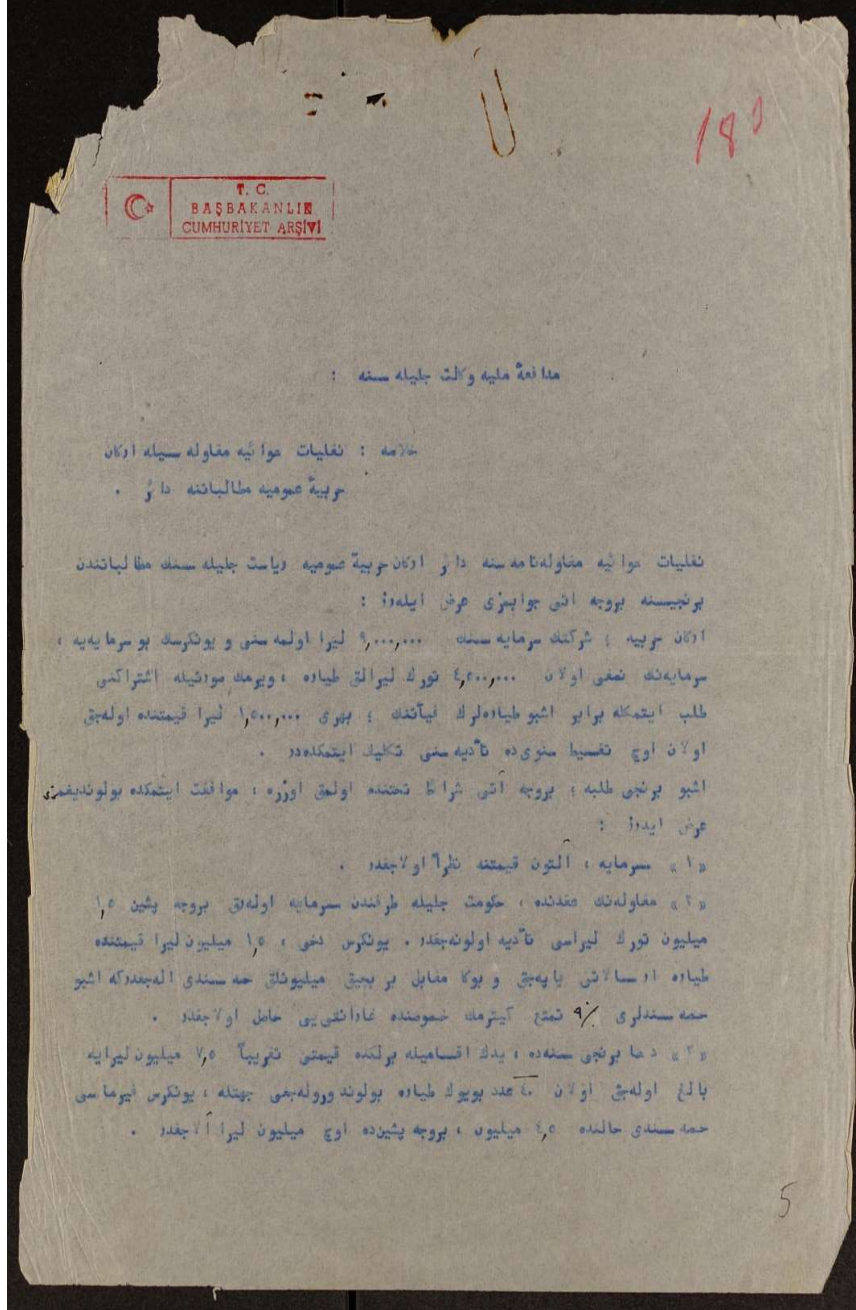 18
T. C.
BAŞBAKANLIK
CUMHURİYET ARŞİVİ
مدافعهٔ ملیه وكالت جلیله سنه :
خلاصه : نقلیات هوائیه مقاوله سیله اركان
حربیهٔ عمومیه مطالباتنه دائر .
نقلیات هوائیه مقاوله‌نامه سنه دائر اركان حربیهٔ عمومیه ریاست جلیله سنك مطالباتندن
برنجیسنه بروجه آتی جوابمزی عرض ایلەرز :
اركان حربیه ؛ شركتك سرمایه سنك ٩,٠٠٠,٠٠٠ لیرا اولمه سنی و یونكرسك بو سرمایه‌یه ،
سرمایه‌نك نصفی اولان ٤,٥٠٠,٠٠٠ تورك لیرالق طیاره ، ویرمك صورتیله اشتراكنی
طلب ایتمكله برابر اشبو طیاره‌لرك فیآتنك ؛ بهری ١,٥٠٠,٠٠٠ لیرا قیمتنده اوله‌جق
اولان اوچ تقسیط سنوی‌ده تأدیه سنی تكلیف ایتمكده‌در .
اشبو برنجی طلبه ؛ بروجه آتی شرائط تحتنده اولمق اوزره ؛ موافقت ایتمكده بولوندیغمزی
عرض ایدرز :
«١» سرمایه ، آلتون قیمتنه نظراً اولاجقدر .
«٢» مقاوله‌نك عقدنده ، حكومت جلیله طرفندن سرمایه اوله‌رق بروجه پشین ١,٥
میلیون تورك لیراسی تأدیه اولونه‌جقدر . یونكرس دخی ، ١,٥ میلیون لیرا قیمتنده
طیاره ارسالاتی یاپه‌جق و بوكا مقابل بر بچق میلیونلق حصه سندی آله‌جقدركه اشبو
حصه سندلری ٩٪ تمتع كیترمك خصوصنده غارانتی‌یی حامل اولاجقدر .
«٣» دها برنجی سنه‌ده ، یدك اقسامیله برلكده قیمتی تقریباً ٧,٥ میلیون لیرایه
بالغ اوله‌جق اولان ٤٠ عدد بویوك طیاره بولوندورولەجغی جهتله ، یونكرس فیرماسی
حصه سندی حالنده ٤,٥ میلیون ، بروجه پشین‌ده اوچ میلیون لیرا آلاجقدر .
5